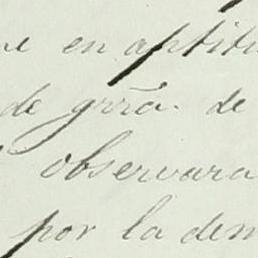 e en aptitu
de grrã. de
observara
por la dem